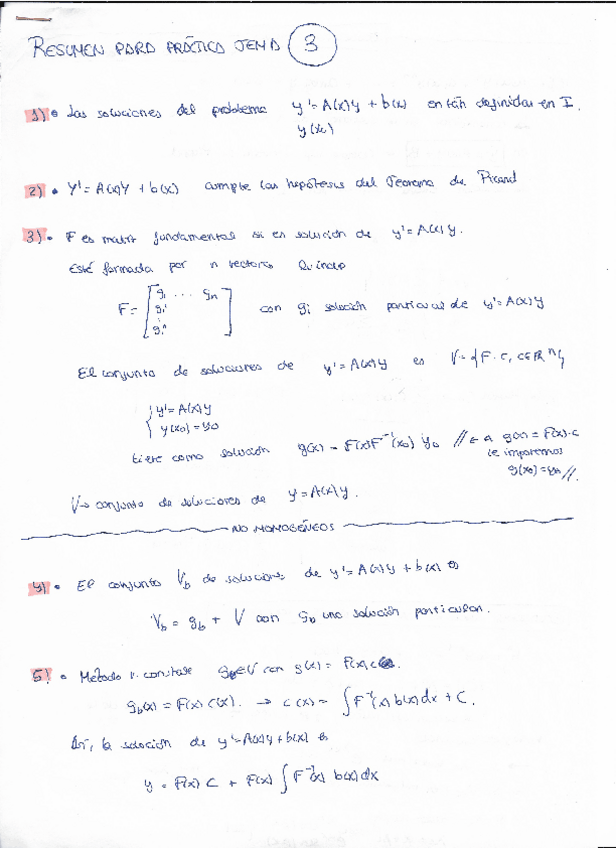 RESUMEN PARA PRÁCTICA TEMA 3
1) • Las soluciones del problema y' = A(x)y + b(x) están definidas en I.
y(x₀)
2) • Y' = A(x)Y + b(x) cumple las hipótesis del Teorema de Picard
3) • F es matriz fundamental si es solución de y' = A(x)y.
Esté formada por n vectores
F = [g₁ ··· gₙ con gᵢ solución particular de y' = A(x)y
El conjunto de soluciones de y' = A(x)y es V = {F·c, c∈ℝⁿ}
{ y' = A(x)y
y(x₀) = y₀
tiene como solución g(x) = F(x)F⁻¹(x₀) y₀ // a g(x) = F(x)·c
le imponemos
g(x₀) = y₀ //.
V → conjunto de soluciones de y' = A(x)y.
NO HOMOGÉNEOS
4) • El conjunto V_b de soluciones de y' = A(x)y + b(x) es
V_b = g_b + V con g_b una solución particular.
5) • Método v. constante g∈V con g(x) = F(x)c.
g_b(x) = F(x) c(x). → c(x) = ∫ F⁻¹(x) b(x) dx + C.
Así, la solución de y' = A(x)y + b(x) es
y = F(x) C + F(x) ∫ F⁻¹(x) b(x) dx